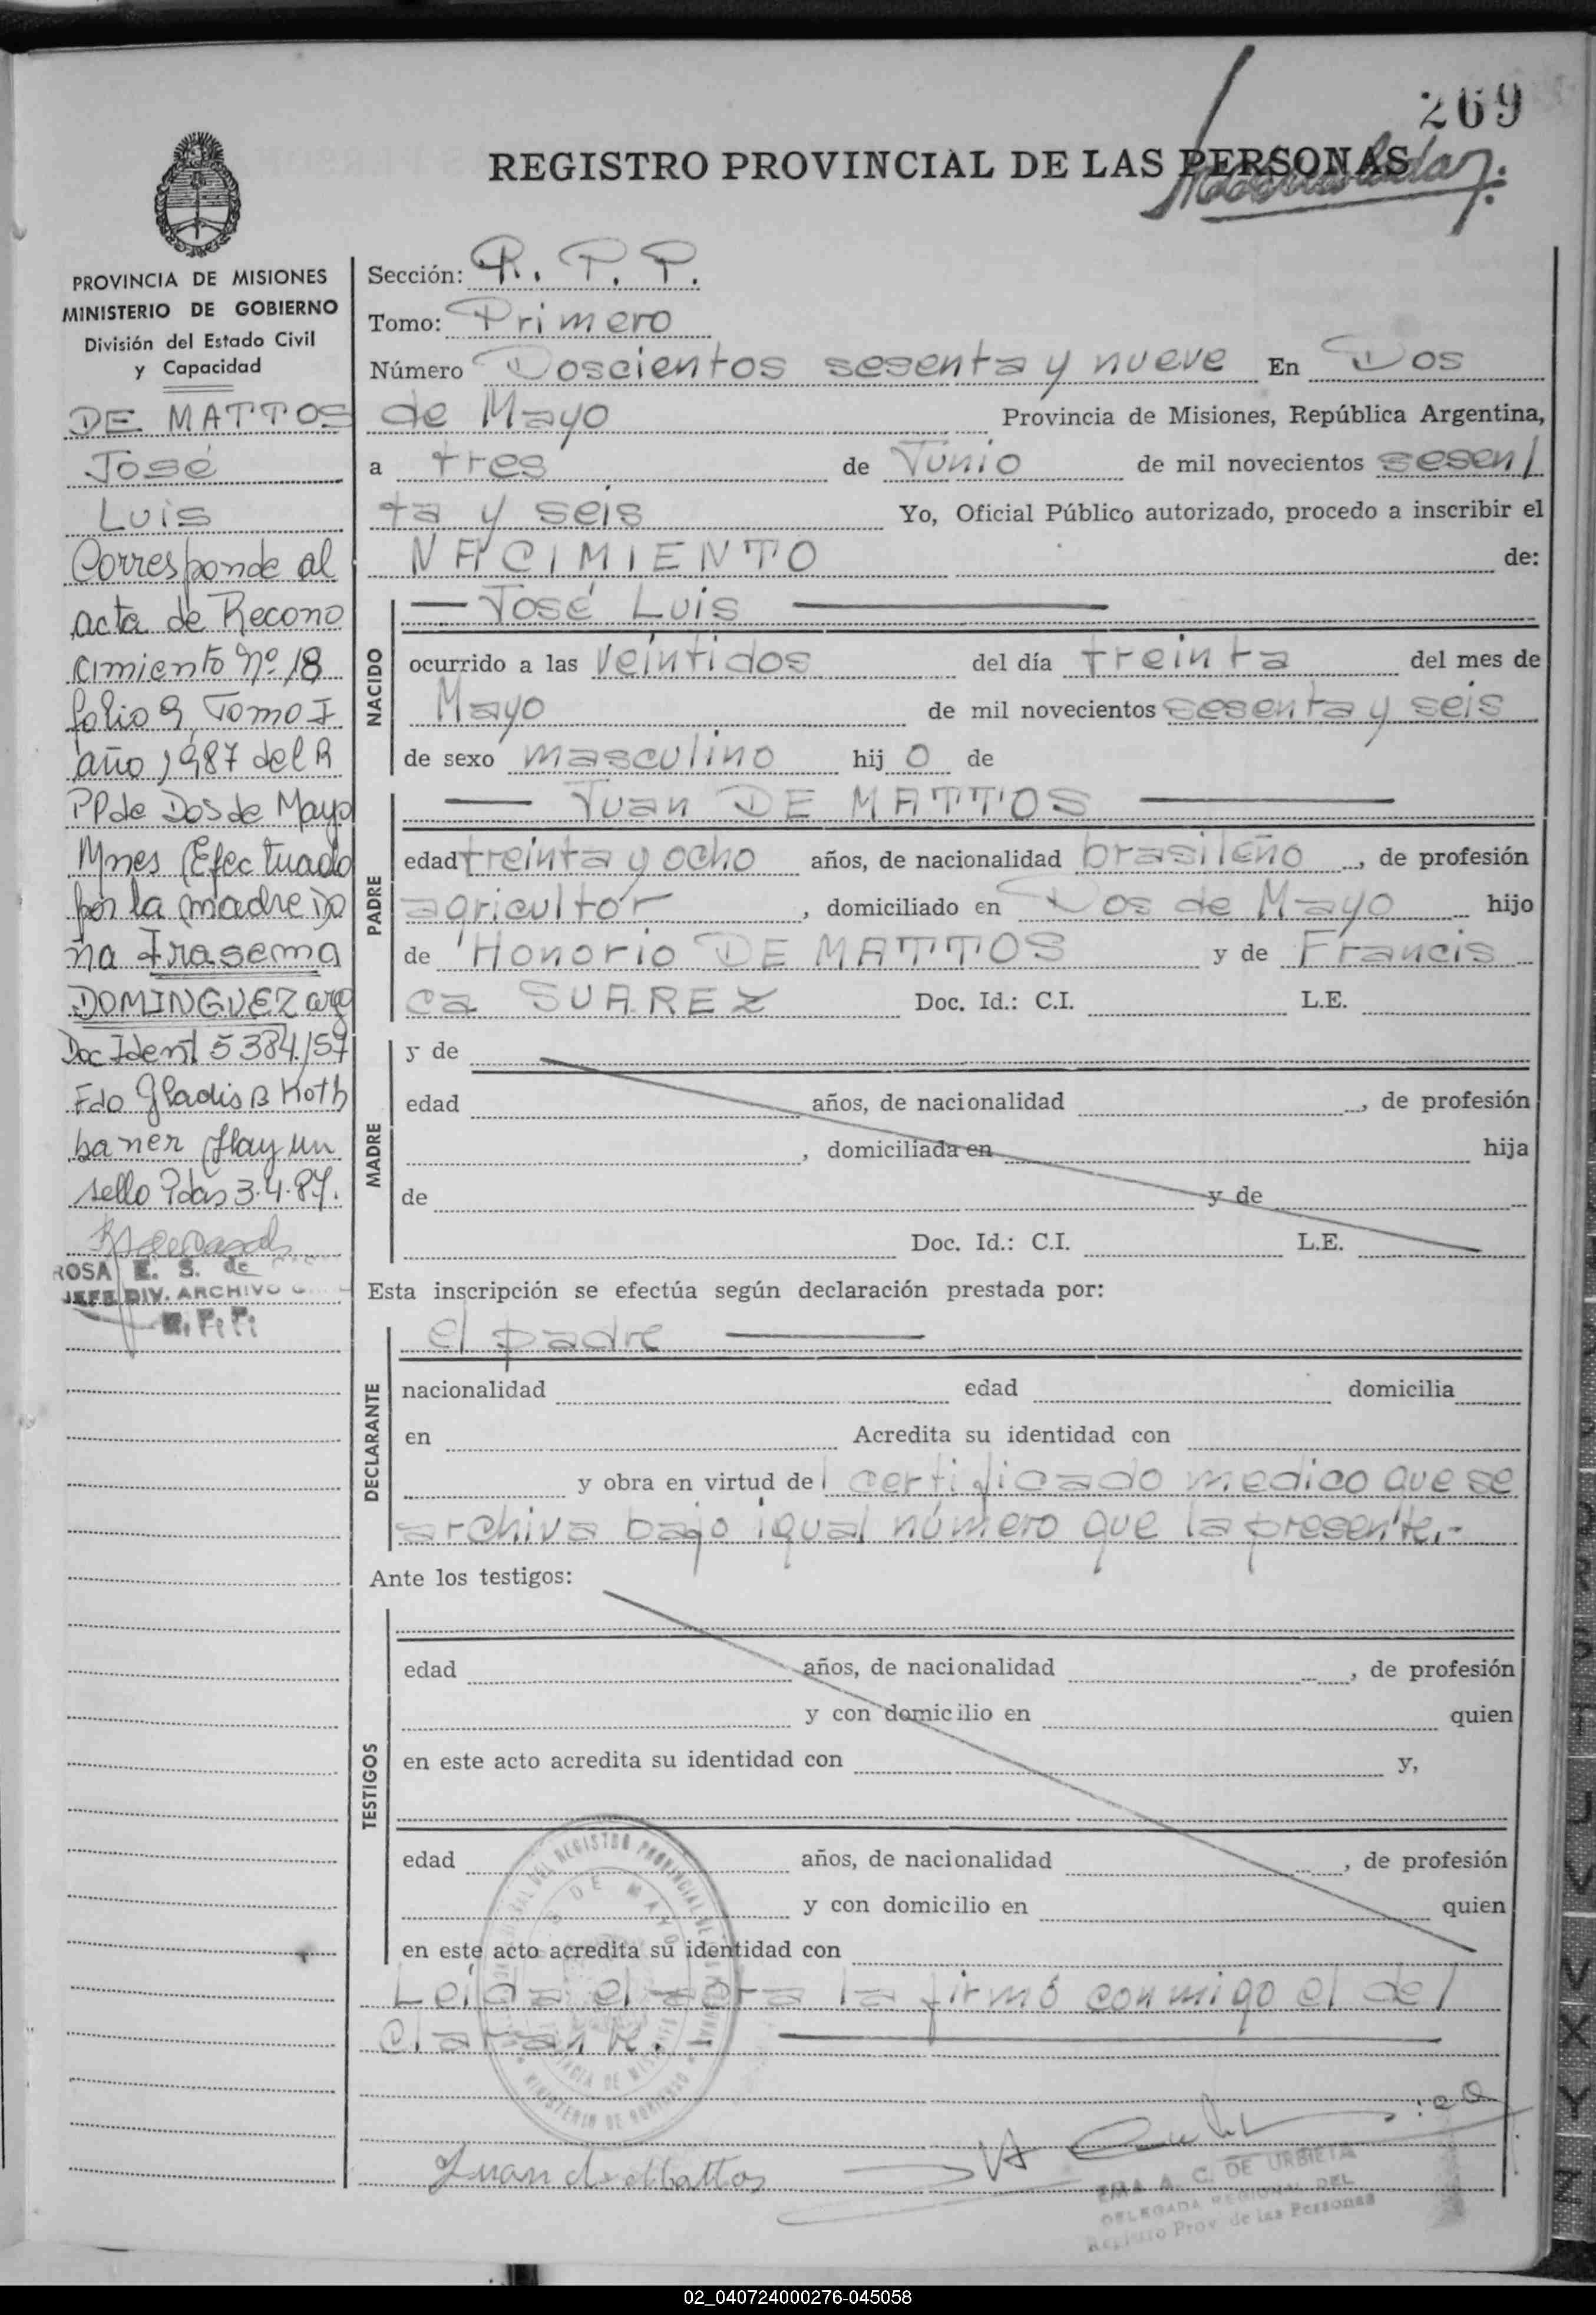 269
REGISTRO PROVINCIAL DE LAS PERSONAS
PROVINCIA DE MISIONES
MINISTERIO DE GOBIERNO
División del Estado Civil
y Capacidad
DE MATTOS
José
Luis
Corresponde al
acta de Recono
cimiento nº 18
folio 9 Tomo I
año 1987 del R
PP de Dos de Mayo
Mnes (Efectuado
por la madre Do
ña Irasema
DOMINGUEZ arg
Doc Ident 5384/57
Fdo Gladis B Koth
baner (Hay un
sello Pdas 3.4.87.
ROSA E. S. de
JEFE DIV. ARCHIVO
R.P.P.
Sección: R. P. P.
Tomo: Primero
Número Doscientos sesenta y nueve En Dos
de Mayo Provincia de Misiones, República Argentina,
a tres de Junio de mil novecientos sesen/
ta y seis Yo, Oficial Público autorizado, procedo a inscribir el
NACIMIENTO de:
NACIDO
— José Luis —
ocurrido a las veintidos del día treinta del mes de
Mayo de mil novecientos sesenta y seis
de sexo masculino hij o de
PADRE
— Juan DE MATTOS —
edad treinta y ocho años, de nacionalidad brasileño, de profesión
agricultor, domiciliado en Dos de Mayo hijo
de Honorio DE MATTOS y de Francis
ca SUAREZ Doc. Id.: C.I. L.E.
MADRE
y de
edad años, de nacionalidad , de profesión
, domiciliada en hija
de y de
Doc. Id.: C.I. L.E.
Esta inscripción se efectúa según declaración prestada por:
DECLARANTE
el padre —
nacionalidad edad domicilia
en Acredita su identidad con
y obra en virtud del certificado medico que se
archiva bajo igual número que la presente.-
Ante los testigos:
TESTIGOS
edad años, de nacionalidad , de profesión
y con domicilio en quien
en este acto acredita su identidad con y,
edad años, de nacionalidad , de profesión
y con domicilio en quien
en este acto acredita su identidad con
Leida el acta la firmó conmigo el de/
clarante. —
Juan de Mattos
EMA A. C. DE URBIETA
DELEGADA REGIONAL DEL
Registro Prov. de las Personas
02_040724000276-045058